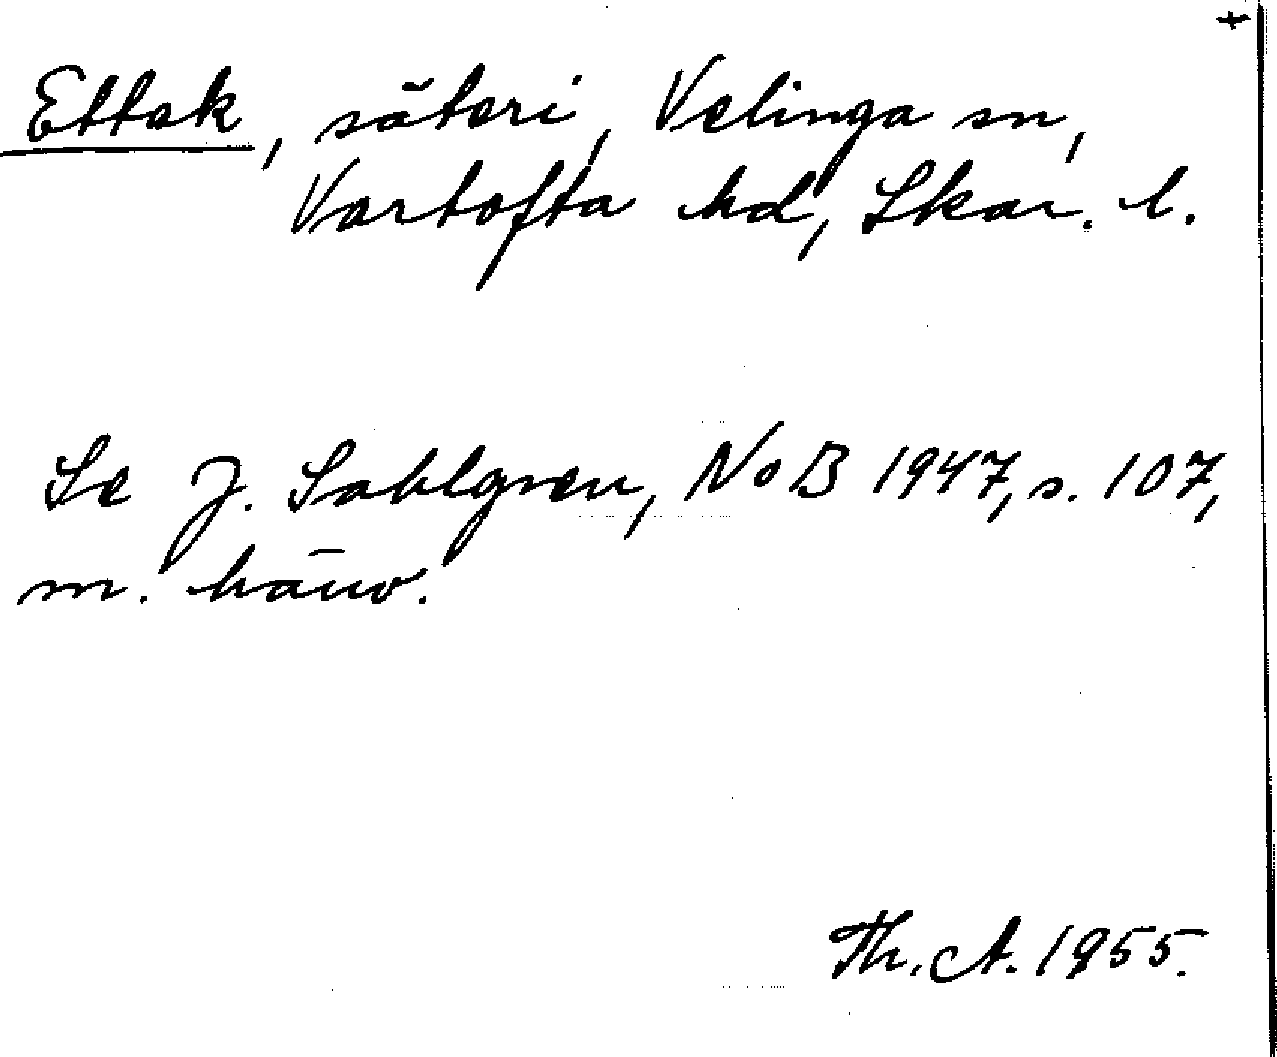 +
Ettak, säteri, Velinga sn,
Vartofta hd, Skar. l.
Se J. Sahlgren, NoB 1947, s. 107,
m. hänv.
Th. A. 1955.